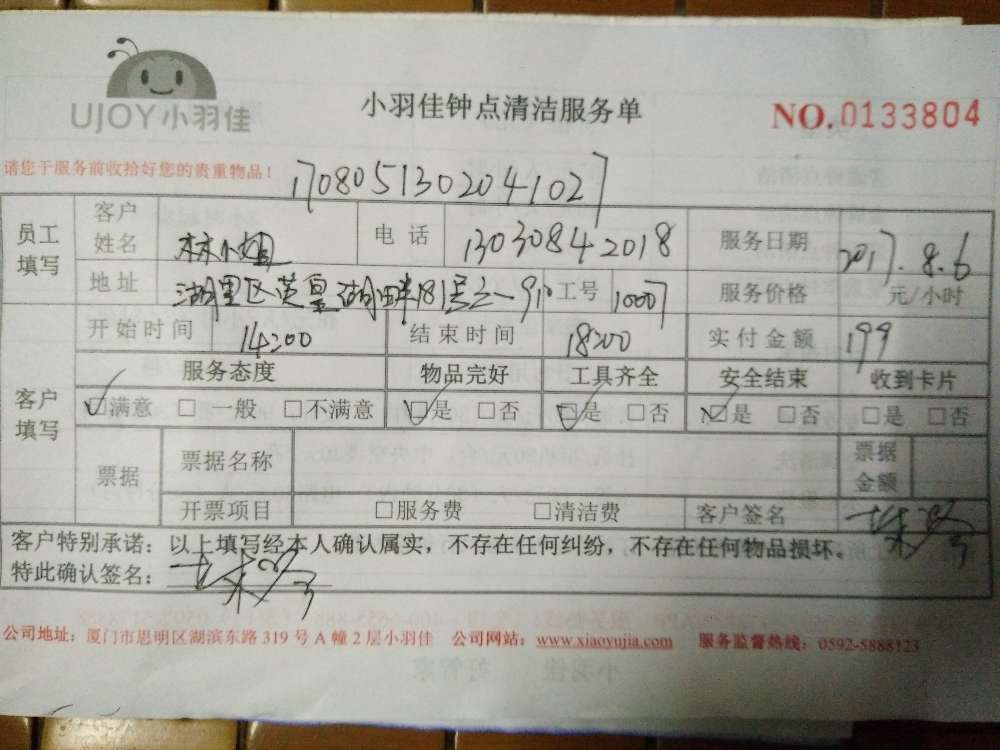 UJOY小羽佳
小羽佳钟点清洁服务单
NO.0133804
请您于服务前收拾好您的贵重物品！
1708051302041027
员工填写 客户姓名 林小姐 电话 13030842018 服务日期 2017.8.6
地址 湖里区英皇湖畔181号之一910 工号 10007 服务价格 元/小时
客户填写 开始时间 14:00 结束时间 18:00 实付金额 199
服务态度 物品完好 工具齐全 安全结束 收到卡片
☑满意 □一般 □不满意 ☑是 □否 ☑是 □否 ☑是 □否 □是 □否
票据 票据名称 票据金额
开票项目 □服务费 □清洁费 客户签名
客户特别承诺：以上填写经本人确认属实，不存在任何纠纷，不存在任何物品损坏。
特此确认签名：
公司地址：厦门市思明区湖滨东路 319 号 A 幢 2 层小羽佳 公司网站：www.xiaoyujia.com 服务监督热线：0592-5888123